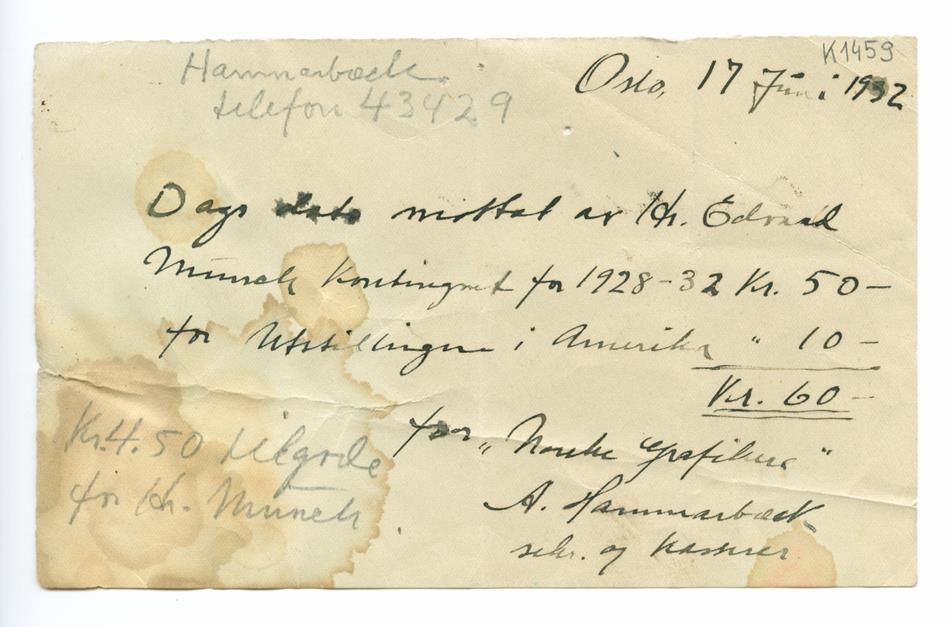 K1459
Hammarbæck.
telefon 43429
Oslo, 17 Juni 1932
Dags dato mottat av Hr. Edvard
Munch Kontingent for 1928-32 Kr. 50-
for Utstillingene i Amerika " 10-
Kr. 60-
for "Norske Grafikere"
A. Hammarbæck
sekr. og kasserer
Kr. 4.50 tilgode
for Hr. Munch